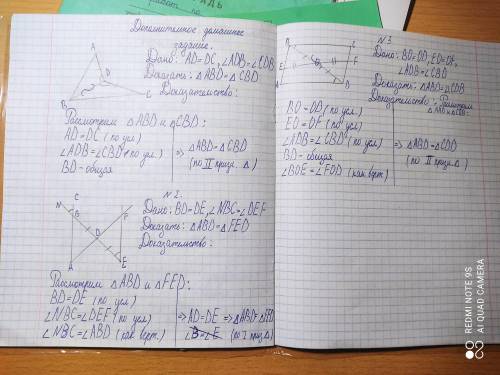 Дополнительное домашнее
задание.
Дано: AD=DC, ∠ADB=∠CDB
Доказать: △ABD=△CBD
Доказательство:
A
D
B
C
Рассмотрим △ABD и △CBD:
AD=DC (по усл.)
∠ADB=∠CBD (по усл.)
BD-общая
=> △ABD=△CBD
(по II призн. △)
N2.
Дано: BD=DE, ∠NBC=∠DEF
Доказать: △ABD=△FED
Доказательство:
N
C
B
F
D
A
E
Рассмотрим △ABD и △FED:
BD=DE (по усл.)
∠NBC=∠DEF (по усл.)
∠NBC=∠ABD (как верт.)
=> AD=DE => △ABD=△FED
∠B=∠E (по I призн. △)
N3
Дано: BO=OD, EO=OF,
∠ADB=∠CBD
Доказать: △ABD=△CDB
Доказательство: Рассмотрим
△ABD и △CDB:
B
C
E
O
F
A
D
BO=OD (по усл.)
EO=OF (по усл.)
∠ADB=∠CBD (по усл.)
BD-общая
∠BOE=∠FOD (как верт.)
=> △ABD=△CDD
(по II призн. △)
REDMI NOTE 9S
AI QUAD CAMERA